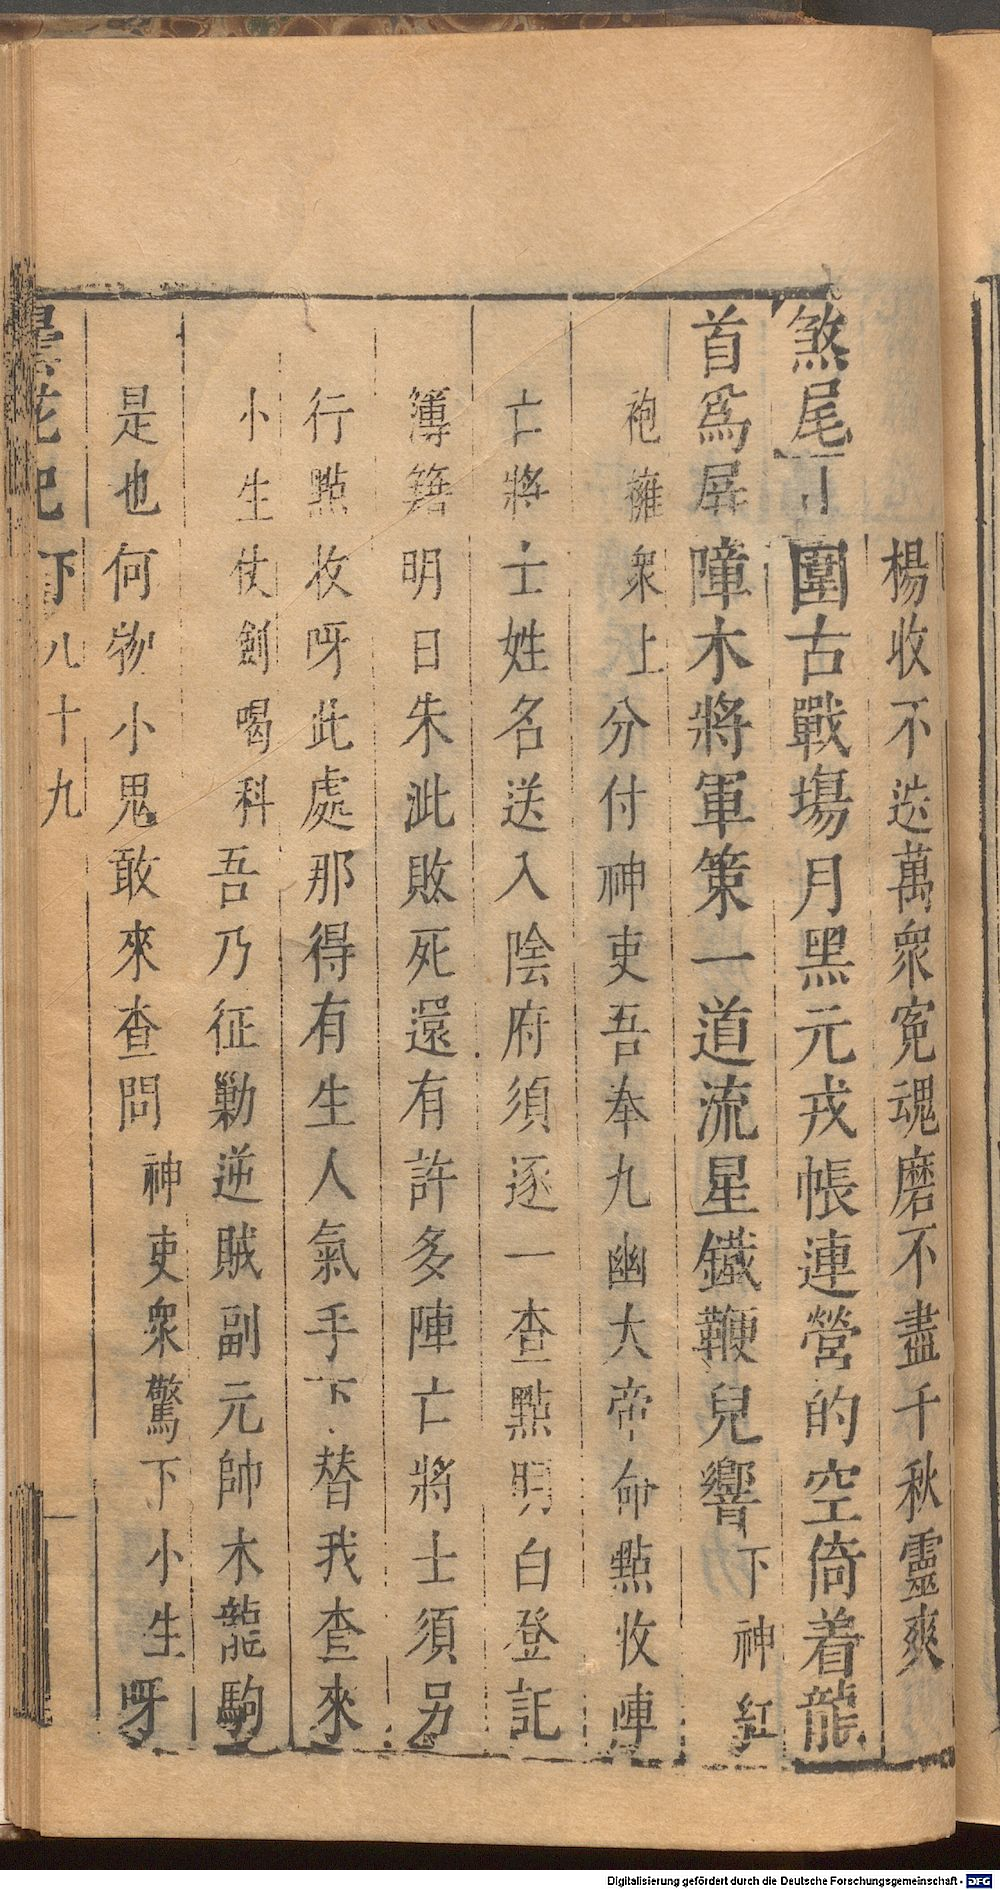 楊收不迭萬衆寃魂磨不盡千秋靈爽
煞尾圍古戰塲月黑元戎帳連營的空倚着龍
首爲屏障木將軍策一道流星鐵鞭兒響下神紅
袍擁衆上分付神吏吾奉九幽大帝命點收陣
亡將士姓名送入陰府須逐一查點明白登記
簿籍明日朱泚敗死還有許多陣亡將士須另
行點收呀此處那得有生人氣手下替我查來
小生仗劍喝科吾乃征勦逆賊副元帥木龍駒
是也何物小鬼敢來查問神吏衆驚下小生呀
曇花記下八十九
Digitalisierung gefördert durch die Deutsche Forschungsgemeinschaft - DFG